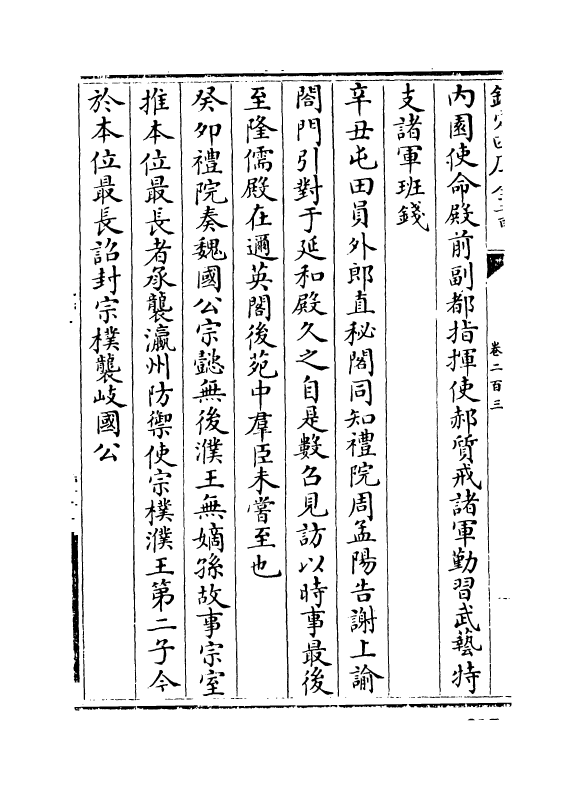 欽定四庫全書
卷二百三
内園使命殿前副都指揮使郝質戒諸軍勤習武藝特
支諸軍班錢
辛丑屯田員外郎直秘閣同知禮院周孟陽告謝上諭
閤門引對于延和殿久之自是數召見訪以時事最後
至隆儒殿在邇英閣後苑中羣臣未嘗至也
癸夘禮院奏魏國公宗懿無後濮王無嫡孫故事宗室
推本位最長者承襲瀛州防禦使宗樸濮王第二子今
於本位最長詔封宗樸襲岐國公